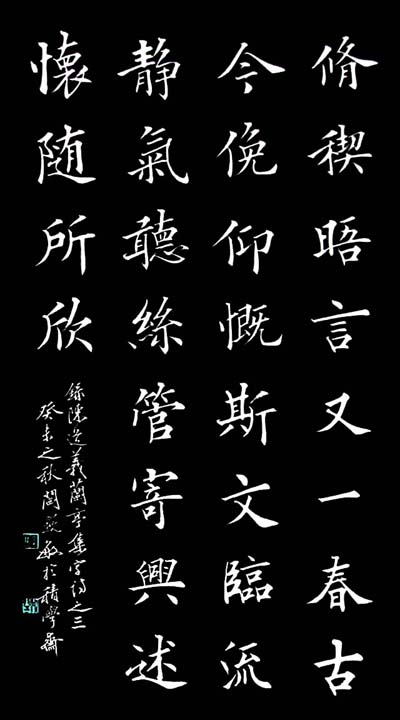 脩稧晤言又一春古
今俛仰慨斯文臨流
静氣聽絲管寄興述
懷随所欣
錄陳義蘭亭集字詩之三
癸未之秋於積學齋